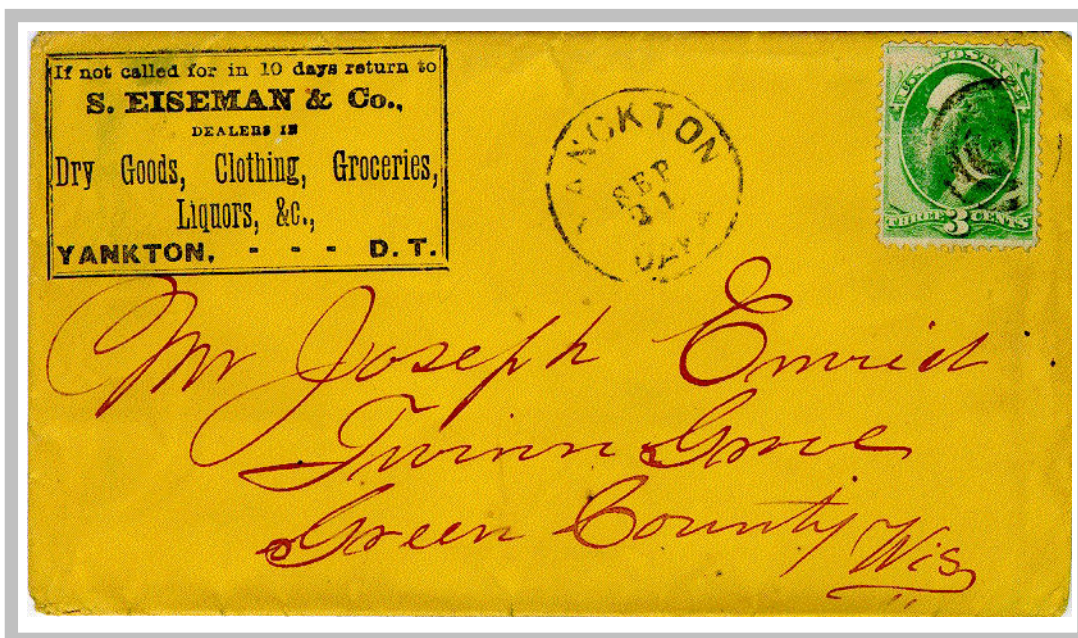 If not called for in 10 days return to
S. EISEMAN & Co.,
DEALERS IN
Dry Goods, Clothing, Groceries,
Liquors, &c.,
YANKTON, - - - D. T.
YANCKTON
SEP
21
DAK
U.S. POSTAGE
THREE 3 CENTS
Mr Joseph
Twinn Grove
Green County Wis